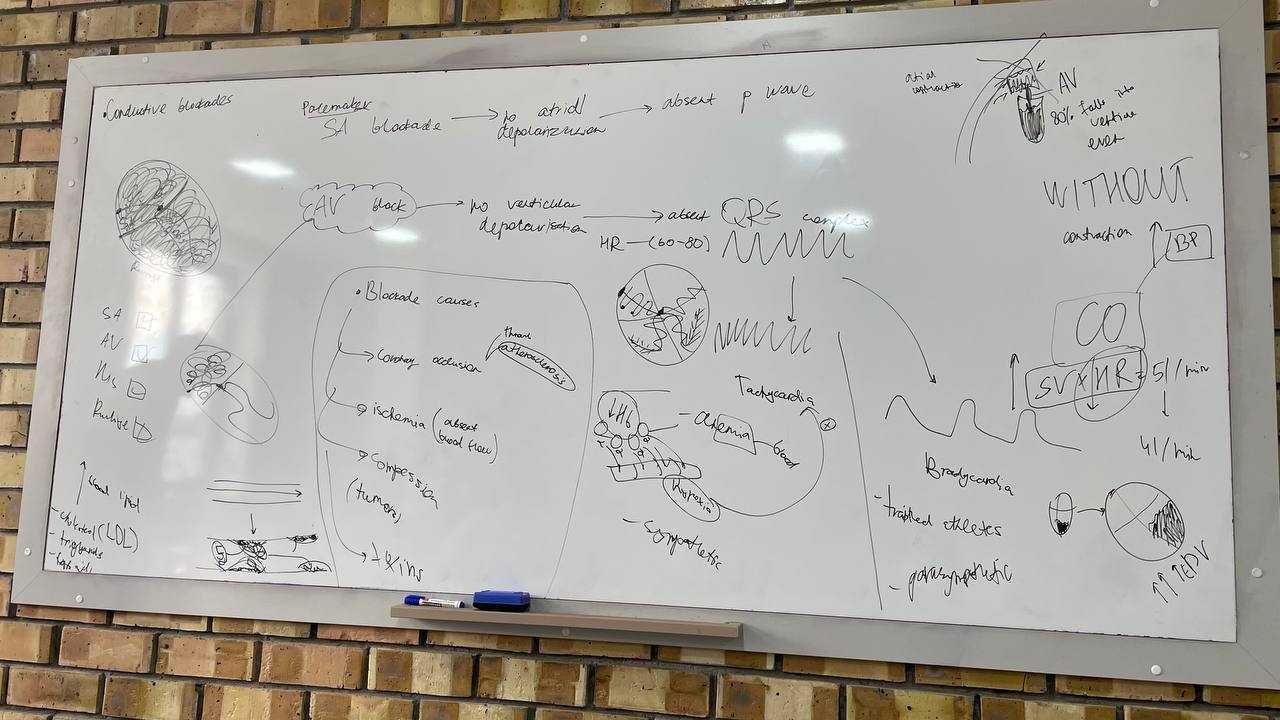 • Conductive blockades
Pacemaker
SA blockade → no atrial depolarization → absent p wave
AV block → no verticular depolarisation → absent QRS complex
HR – (60-80)
SA
AV
His
• Blockade causes
→ Coronary occlusion
atherosclerosis
→ ischemia (absent blood flow)
→ Compession
(tumors)
→ toxins
- cholesterol (LDL)
↓Hb
- anemia - blood
Hypoxia
- sympathetic
Tachycardia
Bradycardia
- trained athletes
- parasympathetic
atrial
contraction
AV
80% falls into
WITHOUT
contraction
↑ BP
CO
↑ SV x HR = 5l/min
4l/min
↑↑↑EDV